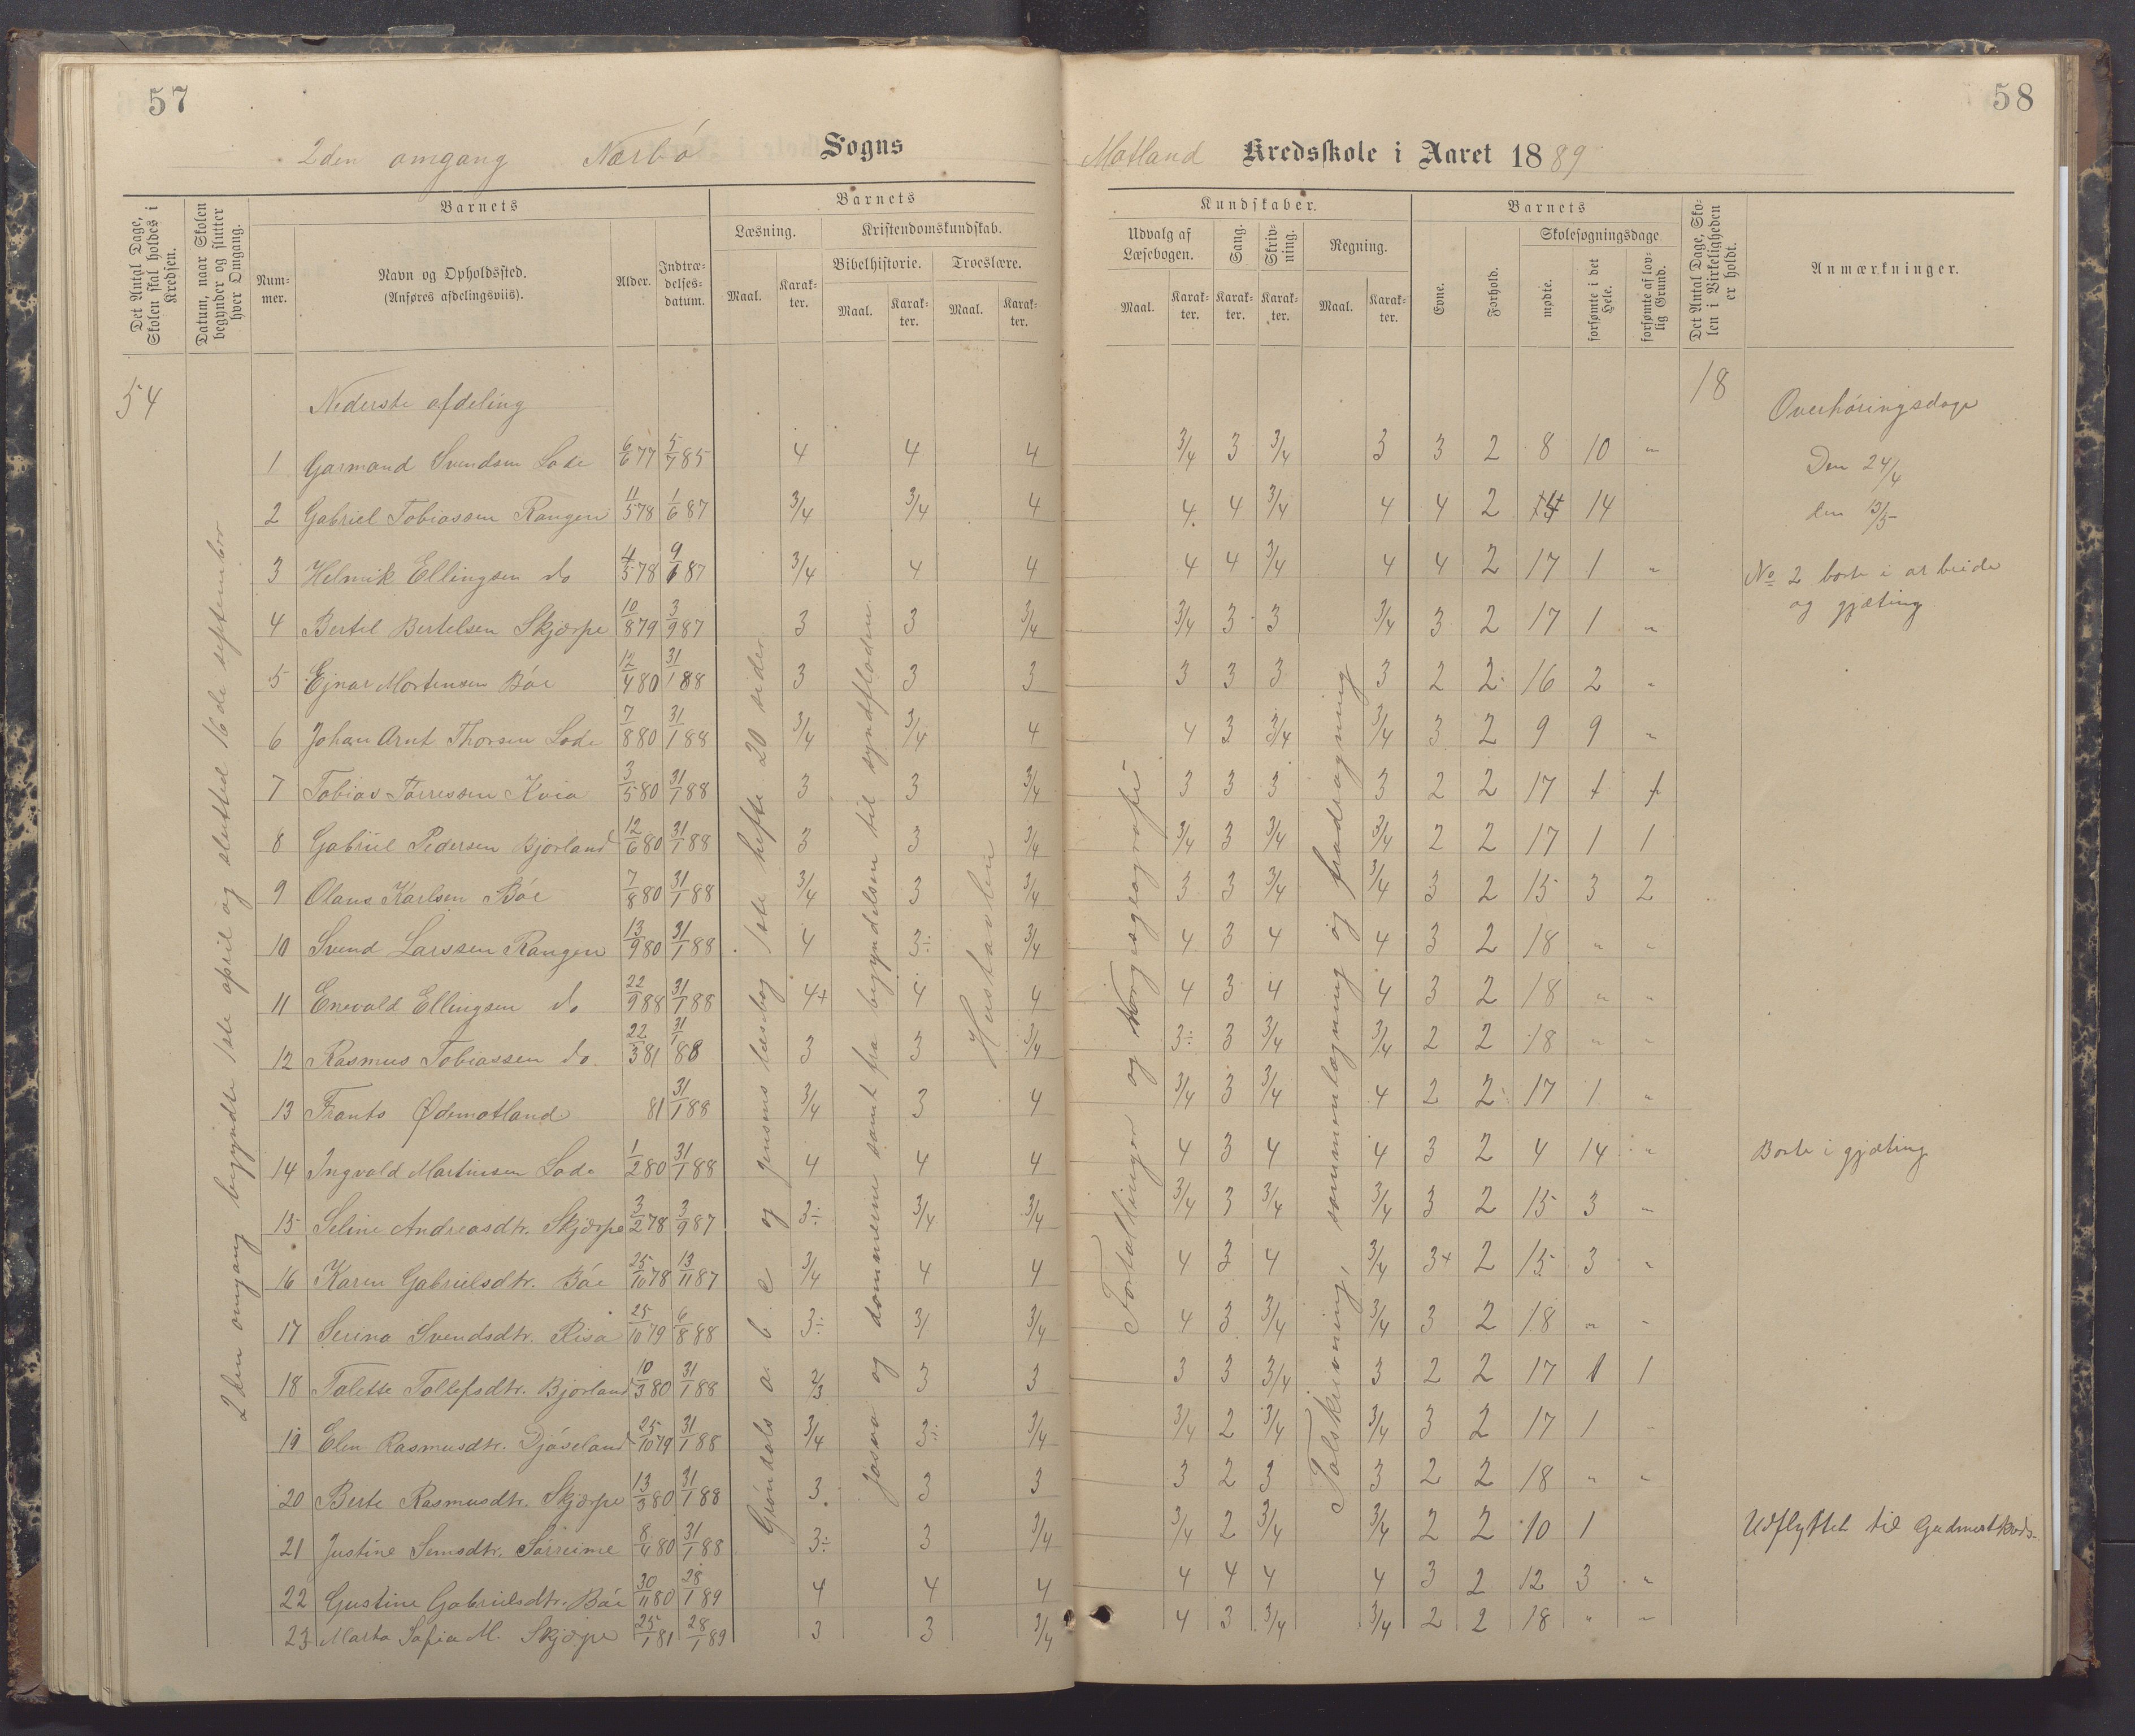 57
58
2den omgang Nærbø Sogns
Motland Kredsskole i Aaret 1889
Det Antal Dage, Skolen skal holdes i Kredsen.
Datum, naar Skolen begynder og slutter hver Omgang.
Barnets
Num-mer.
Navn og Opholdssted.
(Anføres afdelingsviis).
Alder.
Indtræ-delses-datum.
Barnets
Læsning.
Maal.
Karak-ter.
Kristendomskundskab.
Bibelhistorie.
Maal.
Karak-ter.
Troeslære.
Maal.
Karak-ter.
Kundskaber.
Udvalg af Læsebogen.
Maal.
Karak-ter.
Sang.
Karak-ter.
Skriv-ning.
Karak-ter.
Regning.
Maal.
Karak-ter.
Barnets
Evne.
Forhold.
Skolesøgningsdage
mødte.
forsømte i det Hele.
forsømte af lov-lig Grund.
Det Antal Dage, Sko-len i Virkeligheden er holdt.
Anmærkninger.
54
2den omgang begyndte 1ste april og slutted 16de september
Nederste afdeling
18
Overhøringsdage
1 Garmand Svendsen Lode 6/6 77 5/7 85 4 4 4 3/4 3 3/4 3 3 2 8 10 "
Den 24/4
2 Gabriel Tobiassen Rangen 11/5 78 1/6 87 3/4 3/4 4 4 4 3/4 4 4 2 14
den 3/5
3 Helmik Ellingsen do 4/5 78 9/6 87 3/4 4 4 4 4 3/4 4 4 2 17 1 "
No 2 borte i arbeide
og gjæting
4 Bertel Bertelsen Skjærpe 10/8 79 3/9 87 3 3 3/4 3/4 3 3 3/4 3 2 17 1 "
5 Ejnar Mortensen Bøe 12/4 80 31/1 88 3 3 3 3 3 3 3 2 2 16 2 "
6 Johan Arnt Thorsen Lode 7/8 80 31/1 88 3/4 3/4 4 4 3 3/4 3/4 3 2 9 9 "
7 Tobias Tørressen Kvia 3/5 80 31/1 88 3 3 3/4 3 3 3 3 2 2 17 1 1
8 Gabriel Pedersen Bjorland 12/6 80 31/1 88 3 3 3/4 3/4 3 3/4 3/4 2 2 17 1 1
9 Olaus Karlsen Bøe 7/8 80 31/1 88 3/4 3 3/4 3 3 3/4 3/4 3 2 15 3 2
10 Svend Larssen Rangen 13/9 80 31/1 88 4 3÷ 3/4 4 3 4 4 3 2 18 " "
11 Enevald Ellingsen do 22/9 88 31/1 88 4+ 4 4 4 3 4 4 3 2 18 " "
12 Rasmus Tobiassen do. 22/3 81 31/1 88 3 3 3/4 3÷ 3 3/4 3/4 2 2 18 " "
13 Frants Ødemotland 81 31/1 88 3/4 3 4 3/4 3 3/4 4 2 2 17 1 "
14 Ingvald Martinsen Lode 1/2 80 31/1 88 4 4 4 4 3 4 4 3 2 4 14 "
Borte i gjæting
15 Seline Andreasdtr. Skjærpe 3/2 78 3/9 87 3÷ 3/4 3/4 3/4 3 3/4 3/4 3 2 15 3 "
16 Karen Gabrielsdtr. Bøe 25/10 78 13/11 87 3/4 4 4 4 3 4 3/4 3+ 2 15 3 "
17 Serina Svendsdtr. Risa 25/10 79 6/8 88 3÷ 3/ 3/4 4 3 3/4 3/4 3 2 18 " "
18 Talette Tollefsdtr. Bjorland 10/3 80 31/1 88 2/3 3 3 3 3 3/4 3 2 2 17 1 1
19 Elen Rasmusdtr. Djøseland 25/10 79 31/1 88 3/4 3÷ 3/4 3/4 2 3/4 3/4 3 2 17 1
20 Berte Rasmusdtr. Skjærpe 13/3 80 31/1 88 3 3 3 3 2 3 3 2 2 18 " "
21 Justine Simsdtr. Sørreime 8/4 80 31/1 88 3÷ 3 3/4 3/4 2 3/4 3/4 2 2 10 1
Udflyttet til
22 Gustine Gabrielsdtr. Bøe 30/11 80 28/1 89 4 4 4 4 4 4 4 3 2 12 3 "
23 Marta Sofia M. Skjærpe 25/1 81 28/1 89 3 3 3/4 4 3 3/4 3/4 2 2 18 " "
Grøndals a b c og Jensens læsebog 1ste hefte 20 sider
Josva og dommerne samt fra begyndelsen til syndfloden
Hustavlen
Fortællinger og Norgesgeografi
Talskrivning, sammenlægning og fradragning